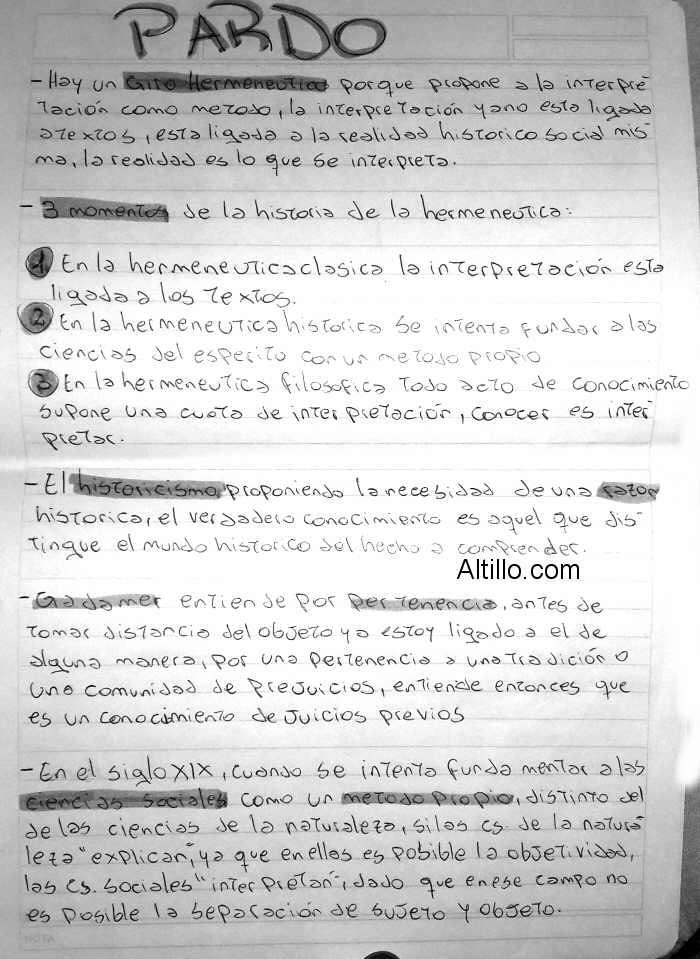 PARDO
- Hay un Giro Hermeneutico porque propone a la interpre
tación como metodo, la interpretación ya no esta ligada
a textos, esta ligada a la realidad historico social mis-
ma, la realidad es lo que se interpreta.
- 3 momentos de la historia de la hermeneutica:
1. En la hermeneutica clasica la interpretación esta
ligada a los textos.
2 En la hermeneutica historica se intenta fundar a las
ciencias del esperito con un metodo propio
3 En la hermeneutica filosofica todo acto de conocimiento
supone una cuota de interpretación, conocer es inter
pretar.
- El historicismo proponiendo la necesidad de una razon
historica, el verdadero conocimiento es aquel que dis-
tingue el mundo historico del hecho a comprender.
Altillo.com
- Gadamer entiende por pertenencia, antes de
tomar distancia del objeto ya estoy ligado a el de
alguna manera, por una pertenencia a una tradición o
una comunidad de prejuicios, entiende entonces que
es un conocimiento de juicios previos
- En el siglo XIX, cuando se intenta fundamentar a las
ciencias sociales como un metodo propio, distinto del
de las ciencias de la naturaleza, si las cs. de la natura
leza "explican", ya que en ellas es posible la objetividad,
las cs. sociales "interpretan", dado que en ese campo no
es posible la separación de sujeto y objeto.
NOTA